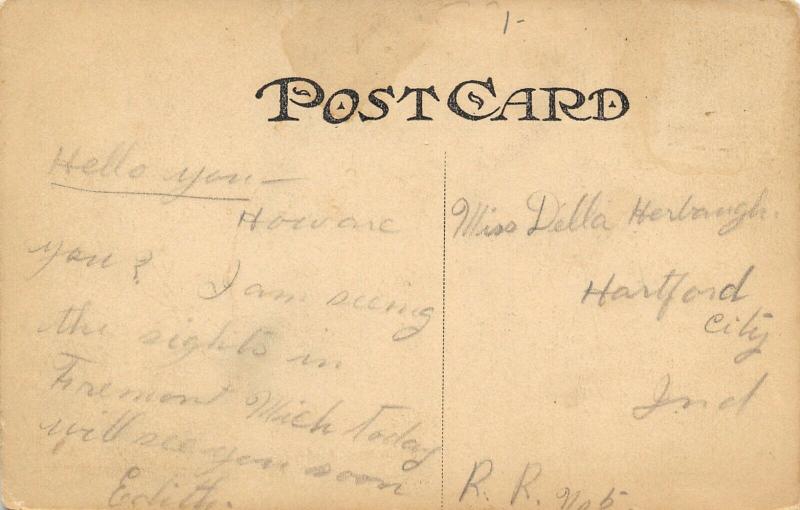 1-
POST CARD
Hello you—
How are
you? I am seeing
the sights in
Fremont Mich today
will see you soon
Edith.
Miss Della Herbaugh.
Hartford
City
Ind
R. R. No 5